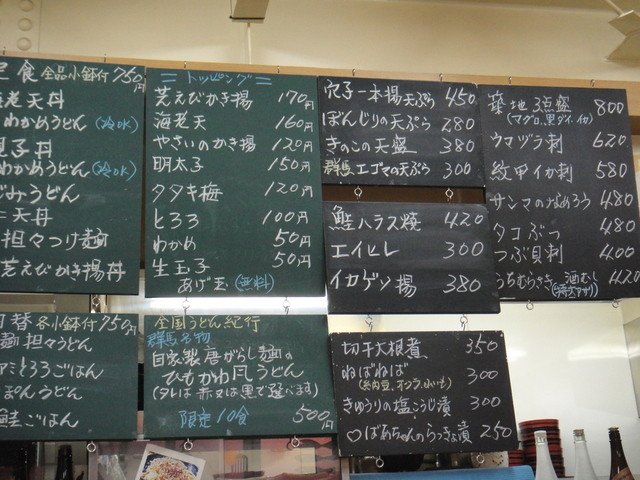 定食 全品小鉢付 750円
海老天丼
わかめうどん (冷OK)
親子丼
わかめうどん (冷OK)
天丼
担々つけ麺
芝えびかき揚丼
トッピング
芝えびかき揚 170円
海老天 160円
やさいのかき揚 120円
明太子 150円
タタキ梅 120円
とろろ 100円
わかめ 50円
生玉子 50円
あげ玉 (無料)
穴子一本揚天ぷら 450
ぼんじりの天ぷら 280
きのこの天盛 380
群馬エゴマの天ぷら 300
鮭ハラス焼 420
エイヒレ 300
イカゲソ揚 380
築地3点盛 800
(マグロ、黒ダイ、イカ)
ウマヅラ刺 620
紋甲イカ刺 580
サンマのなめろう 480
タコぶつ 480
つぶ貝刺 400
うちむらさき 酒むし 420
(大アサリ)
日替 各小鉢付 750円
麺担々うどん
とろろごはん
ぽんうどん
鮭ごはん
全国うどん紀行
群馬名物
自家製唐がらし麺の
ひもかわ風うどん
(タレは赤又は黒で選べます)
限定10食 500円
切干大根煮 350
ねばねば 300
(納豆、オクラ、めいも)
きゅうりの塩こうじ漬 300
♡ばあちゃんのらっきょ漬 250